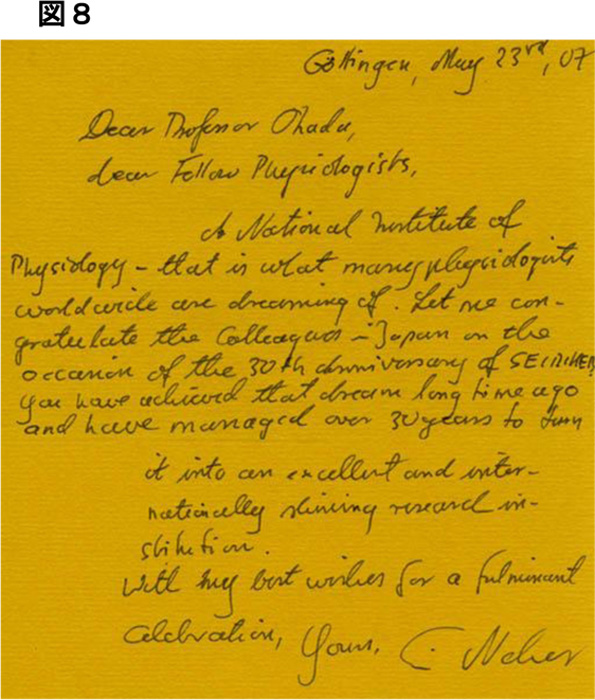 図８
Göttingen, May 23rd, 07
Dear Professor Okada,
dear Fellow Physiologists,
A National Institute of
Physiology – that is what many physiologists
worldwide are dreaming of. Let me con-
gratulate the Colleagues in Japan on the
occasion of the 30th anniversary of SEIRIKEN
You have achieved that dream long time ago
and have managed over 30 years to turn
it into an excellent and inter-
nationally shining research in-
stitution.
With my best wishes for a fulminant
celebration, Yours, E. Neher